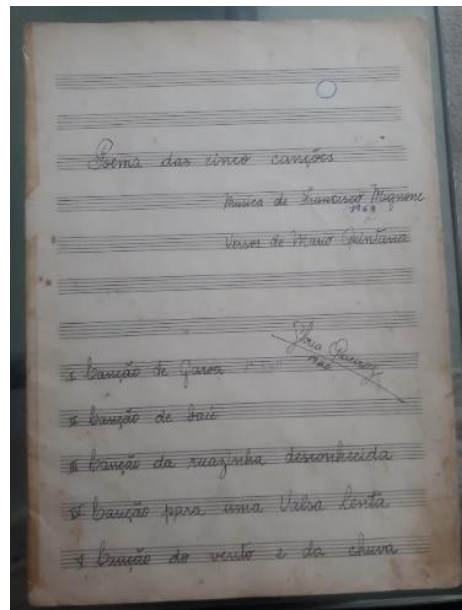 Poema das cinco canções
Musica de Francisco Mignone
1968
Versos de Mario Quintana
I Canção de Garoa
II Canção de baú
III Canção da ruazinha desconhecida
IV Canção para uma Valsa lenta
V Canção do vento e da chuva